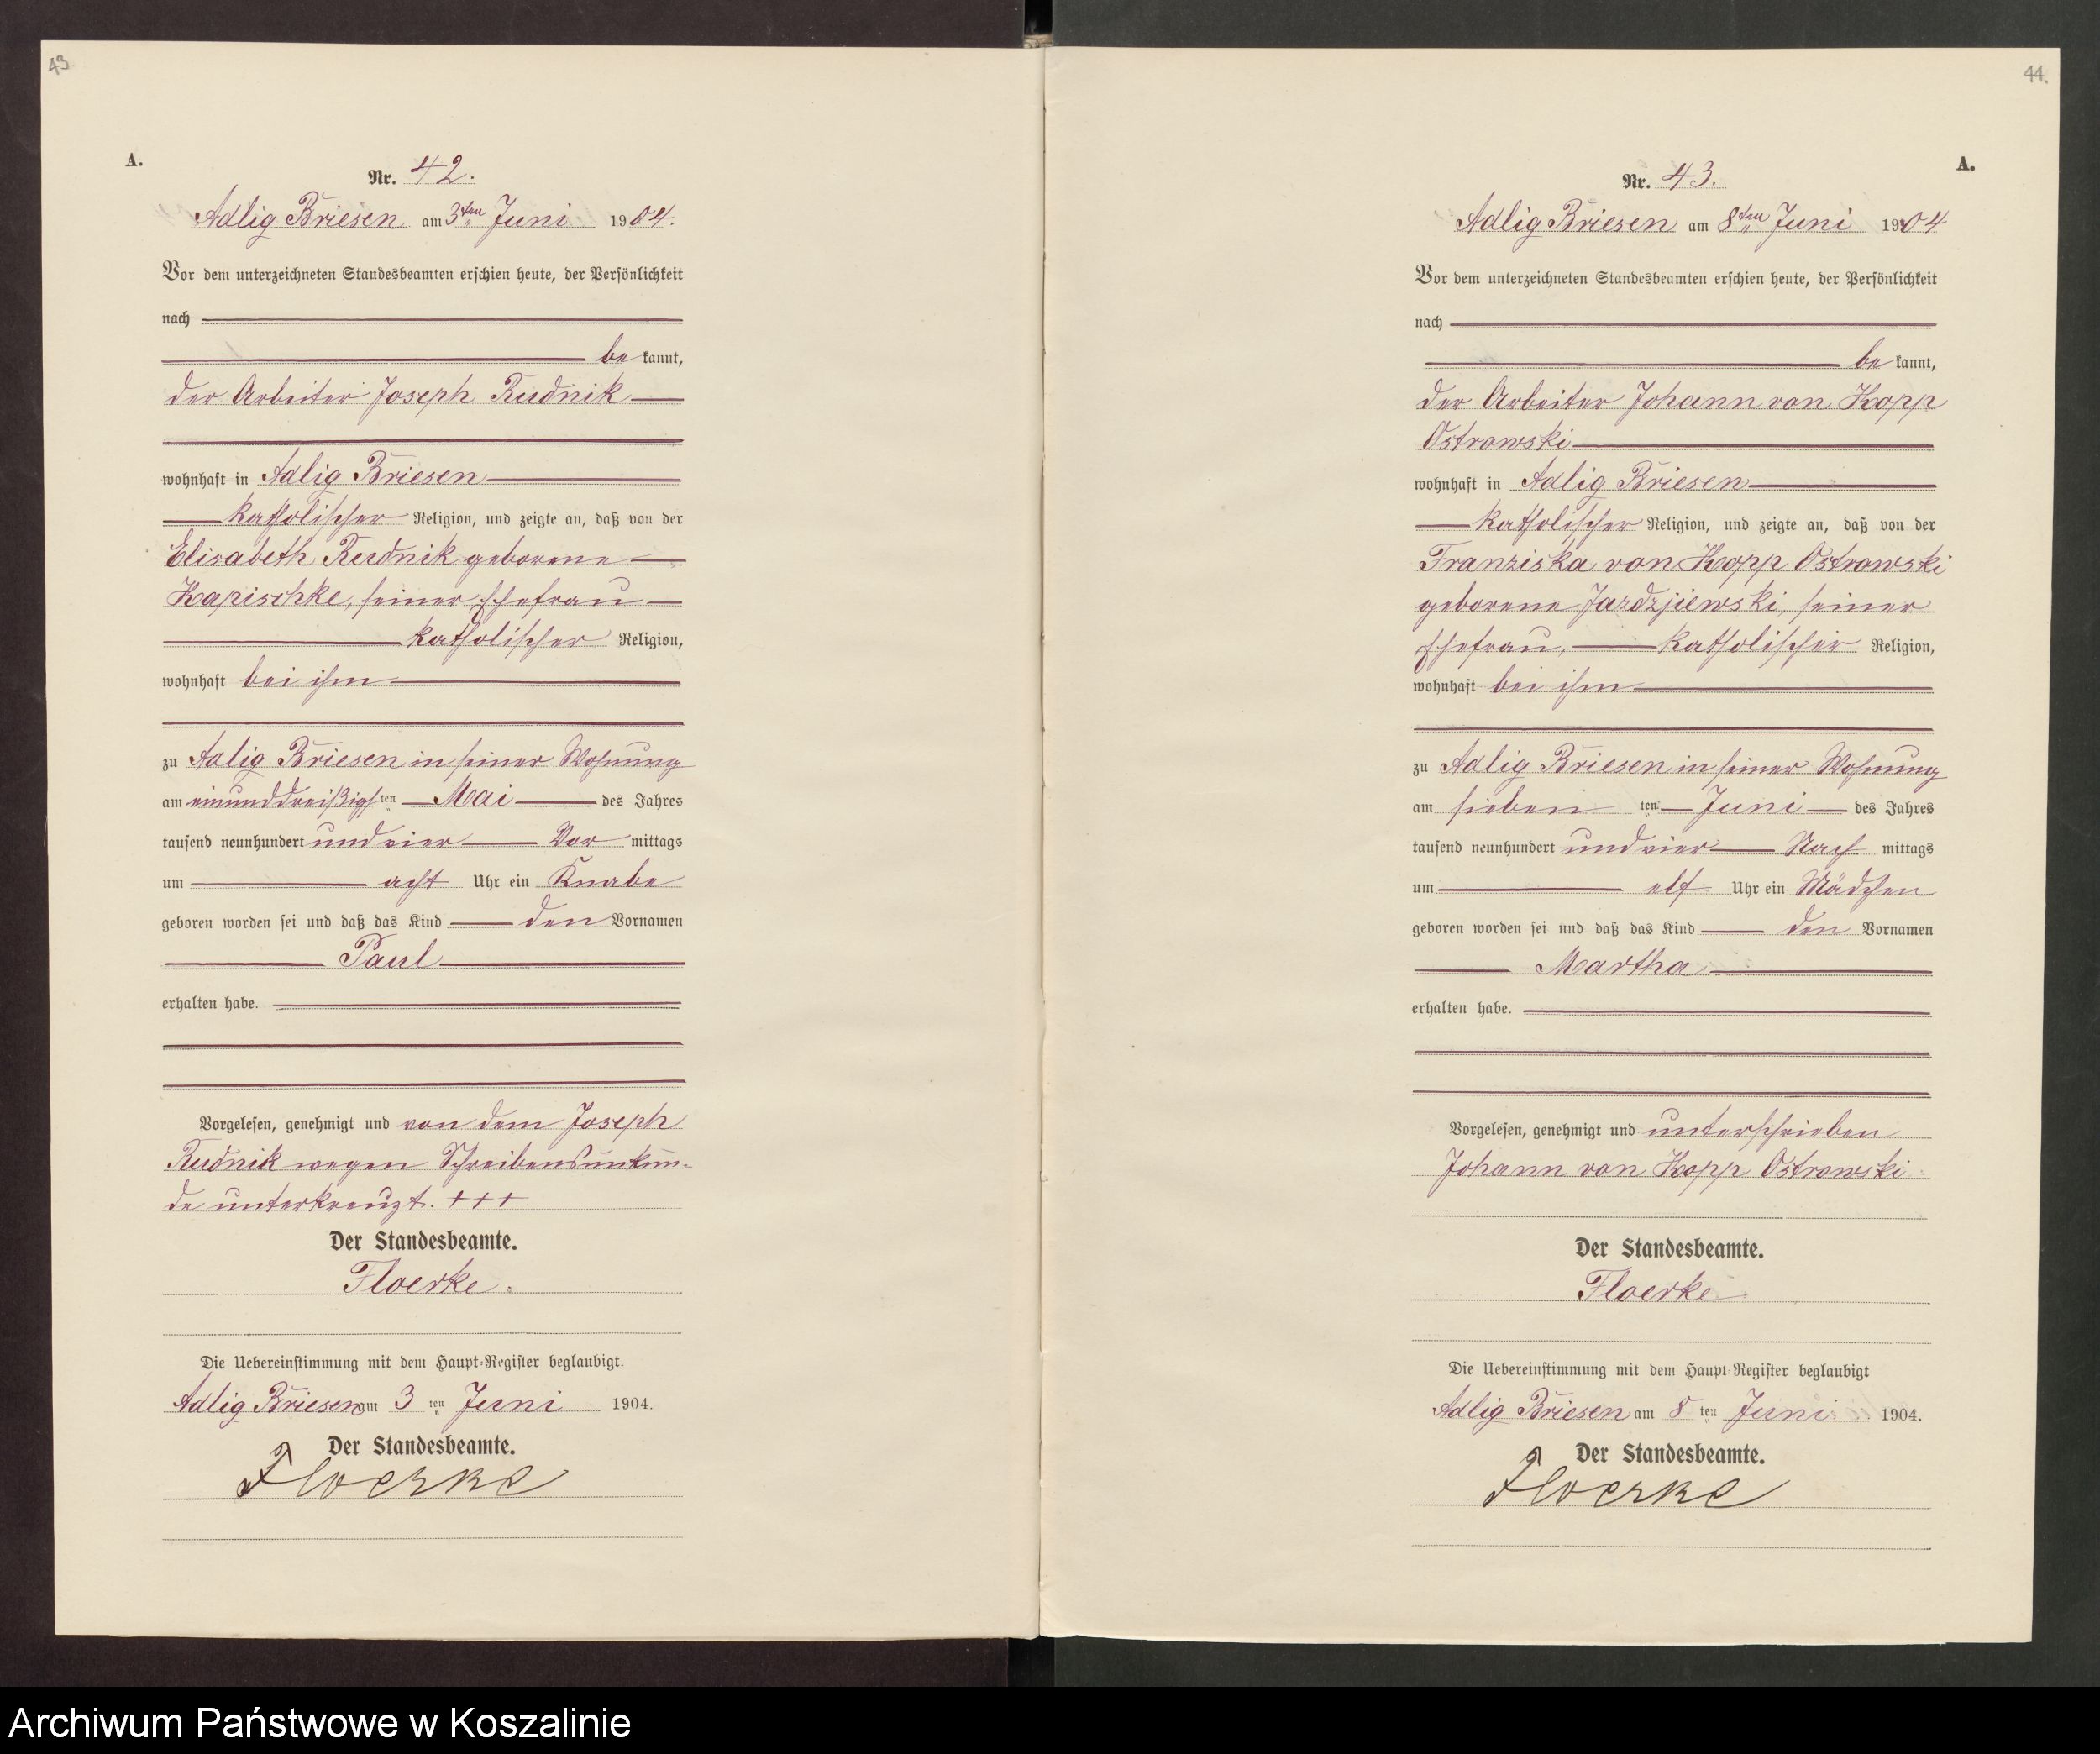 43
A.
Nr. 42.
Adlig Briesen am 3ten Juni 1904.
Vor dem unterzeichneten Standesbeamten erschien heute, der Persönlichkeit
nach
be kannt,
der Arbeiter Joseph Rudnik
wohnhaft in Adlig Briesen
katholischer Religion, und zeigte an, daß von der
Elisabeth Rudnik geborene
Kapischke, seiner Ehefrau
katholischer Religion,
wohnhaft bei ihm
zu Adlig Briesen in seiner Wohnung
am einunddreißigsten Mai des Jahres
tausend neunhundert und vier Vor mittags
um acht Uhr ein Knabe
geboren worden sei und daß das Kind den Vornamen
Paul
erhalten habe.
Vorgelesen, genehmigt und von dem Joseph
Rudnik wegen Schreibensunkun-
de unterkreuzt. + + +
Der Standesbeamte.
Floerke.
Die Uebereinstimmung mit dem Haupt-Register beglaubigt.
Adlig Briesen am 3 ten Juni 1904.
Der Standesbeamte.
Floerke
44.
A.
Nr. 43.
Adlig Briesen am 8ten Juni 1904
Vor dem unterzeichneten Standesbeamten erschien heute, der Persönlichkeit
nach
be kannt,
der Arbeiter Johann von Kopp
Ostrowski
wohnhaft in Adlig Briesen
katholischer Religion, und zeigte an, daß von der
Franziska von Kopp Ostrowski
geborene Jazdzjiewski, seiner
Ehefrau, katholischer Religion,
wohnhaft bei ihm
zu Adlig Briesen in seiner Wohnung
am sieben ten Juni des Jahres
tausend neunhundert und vier Nach mittags
um elf Uhr ein Mädchen
geboren worden sei und daß das Kind den Vornamen
Martha
erhalten habe.
Vorgelesen, genehmigt und unterschrieben
Johann von Kopp Ostrowski
Der Standesbeamte.
Floerke
Die Uebereinstimmung mit dem Haupt-Register beglaubigt
Adlig Briesen am 8 ten Juni 1904.
Der Standesbeamte.
Floerke
Archiwum Państwowe w Koszalinie